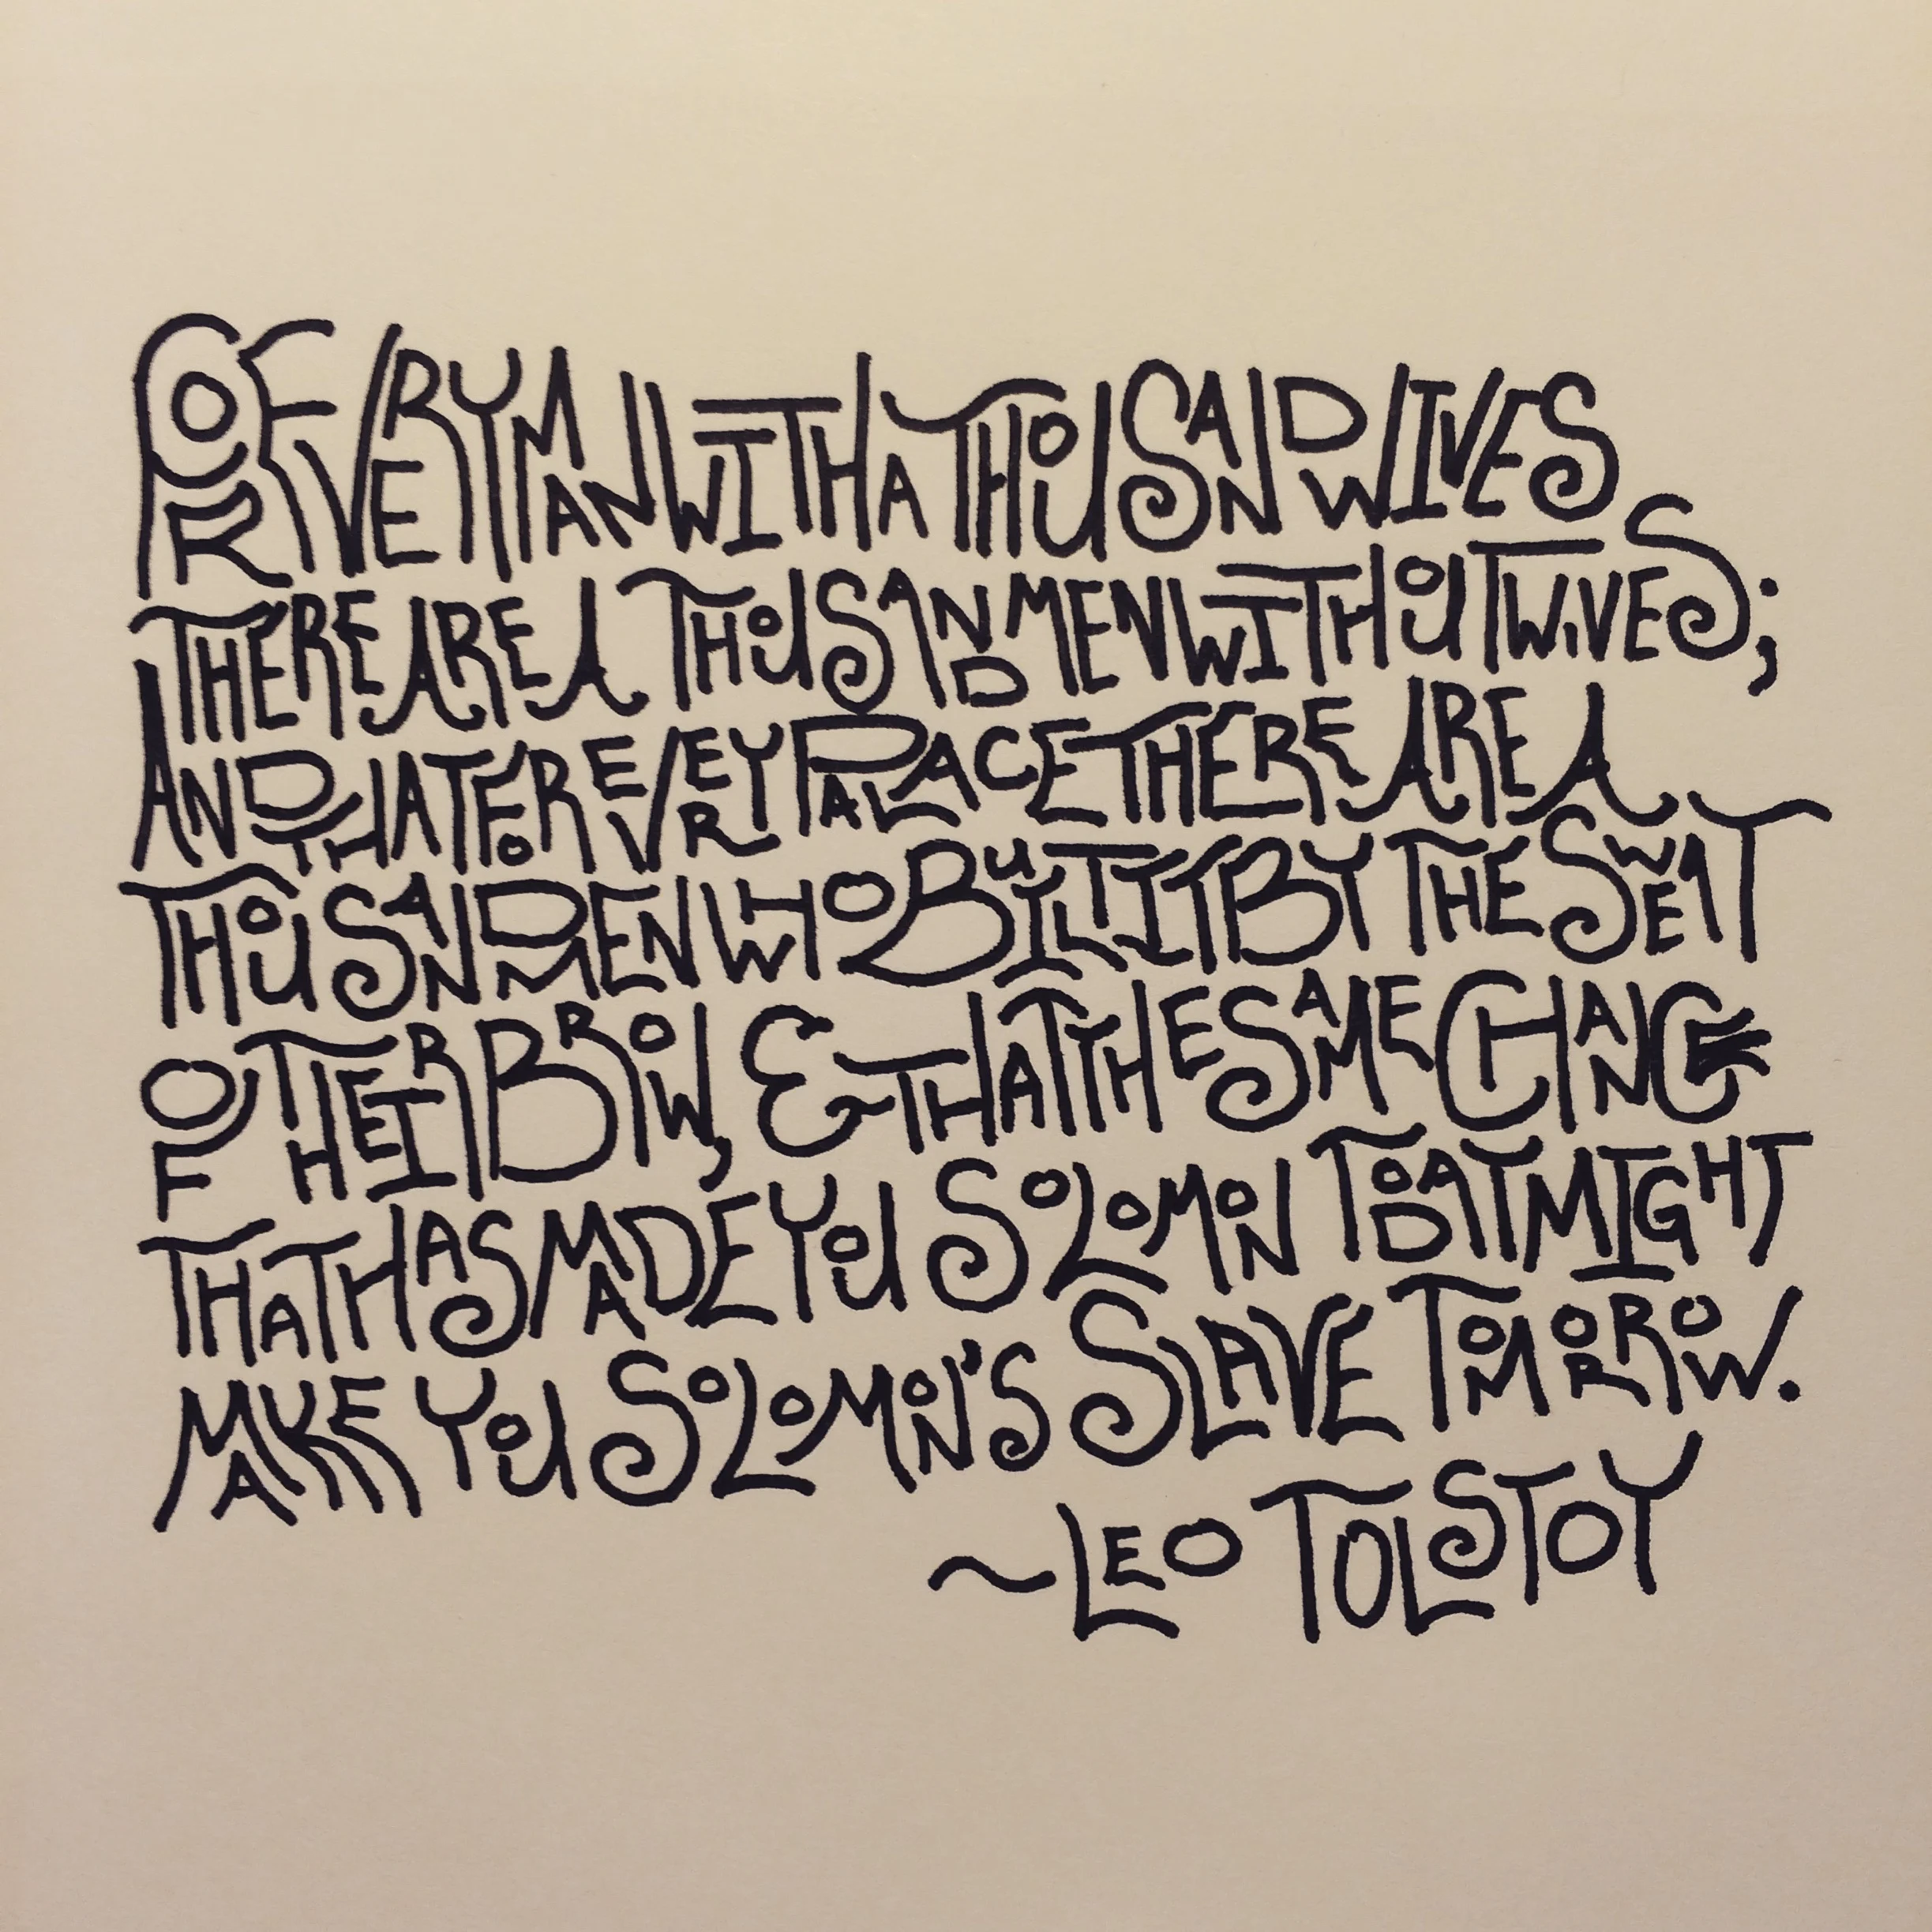 FOR EVERY MAN WITH A THOUSAND WIVES
THERE ARE A THOUSAND MEN WITHOUT WIVES;
AND THAT FOR EVEREY PALACE THERE ARE A
THOUSAND MEN WHO BUILT IT BY THE SWEAT
OF THEIR BROW, & THAT THE SAME CHANCE
THAT HAS MADE YOU SOLOMON TODAY MIGHT
MAKE YOU SOLOMON'S SLAVE TOMORROW.
~LEO TOLSTOY